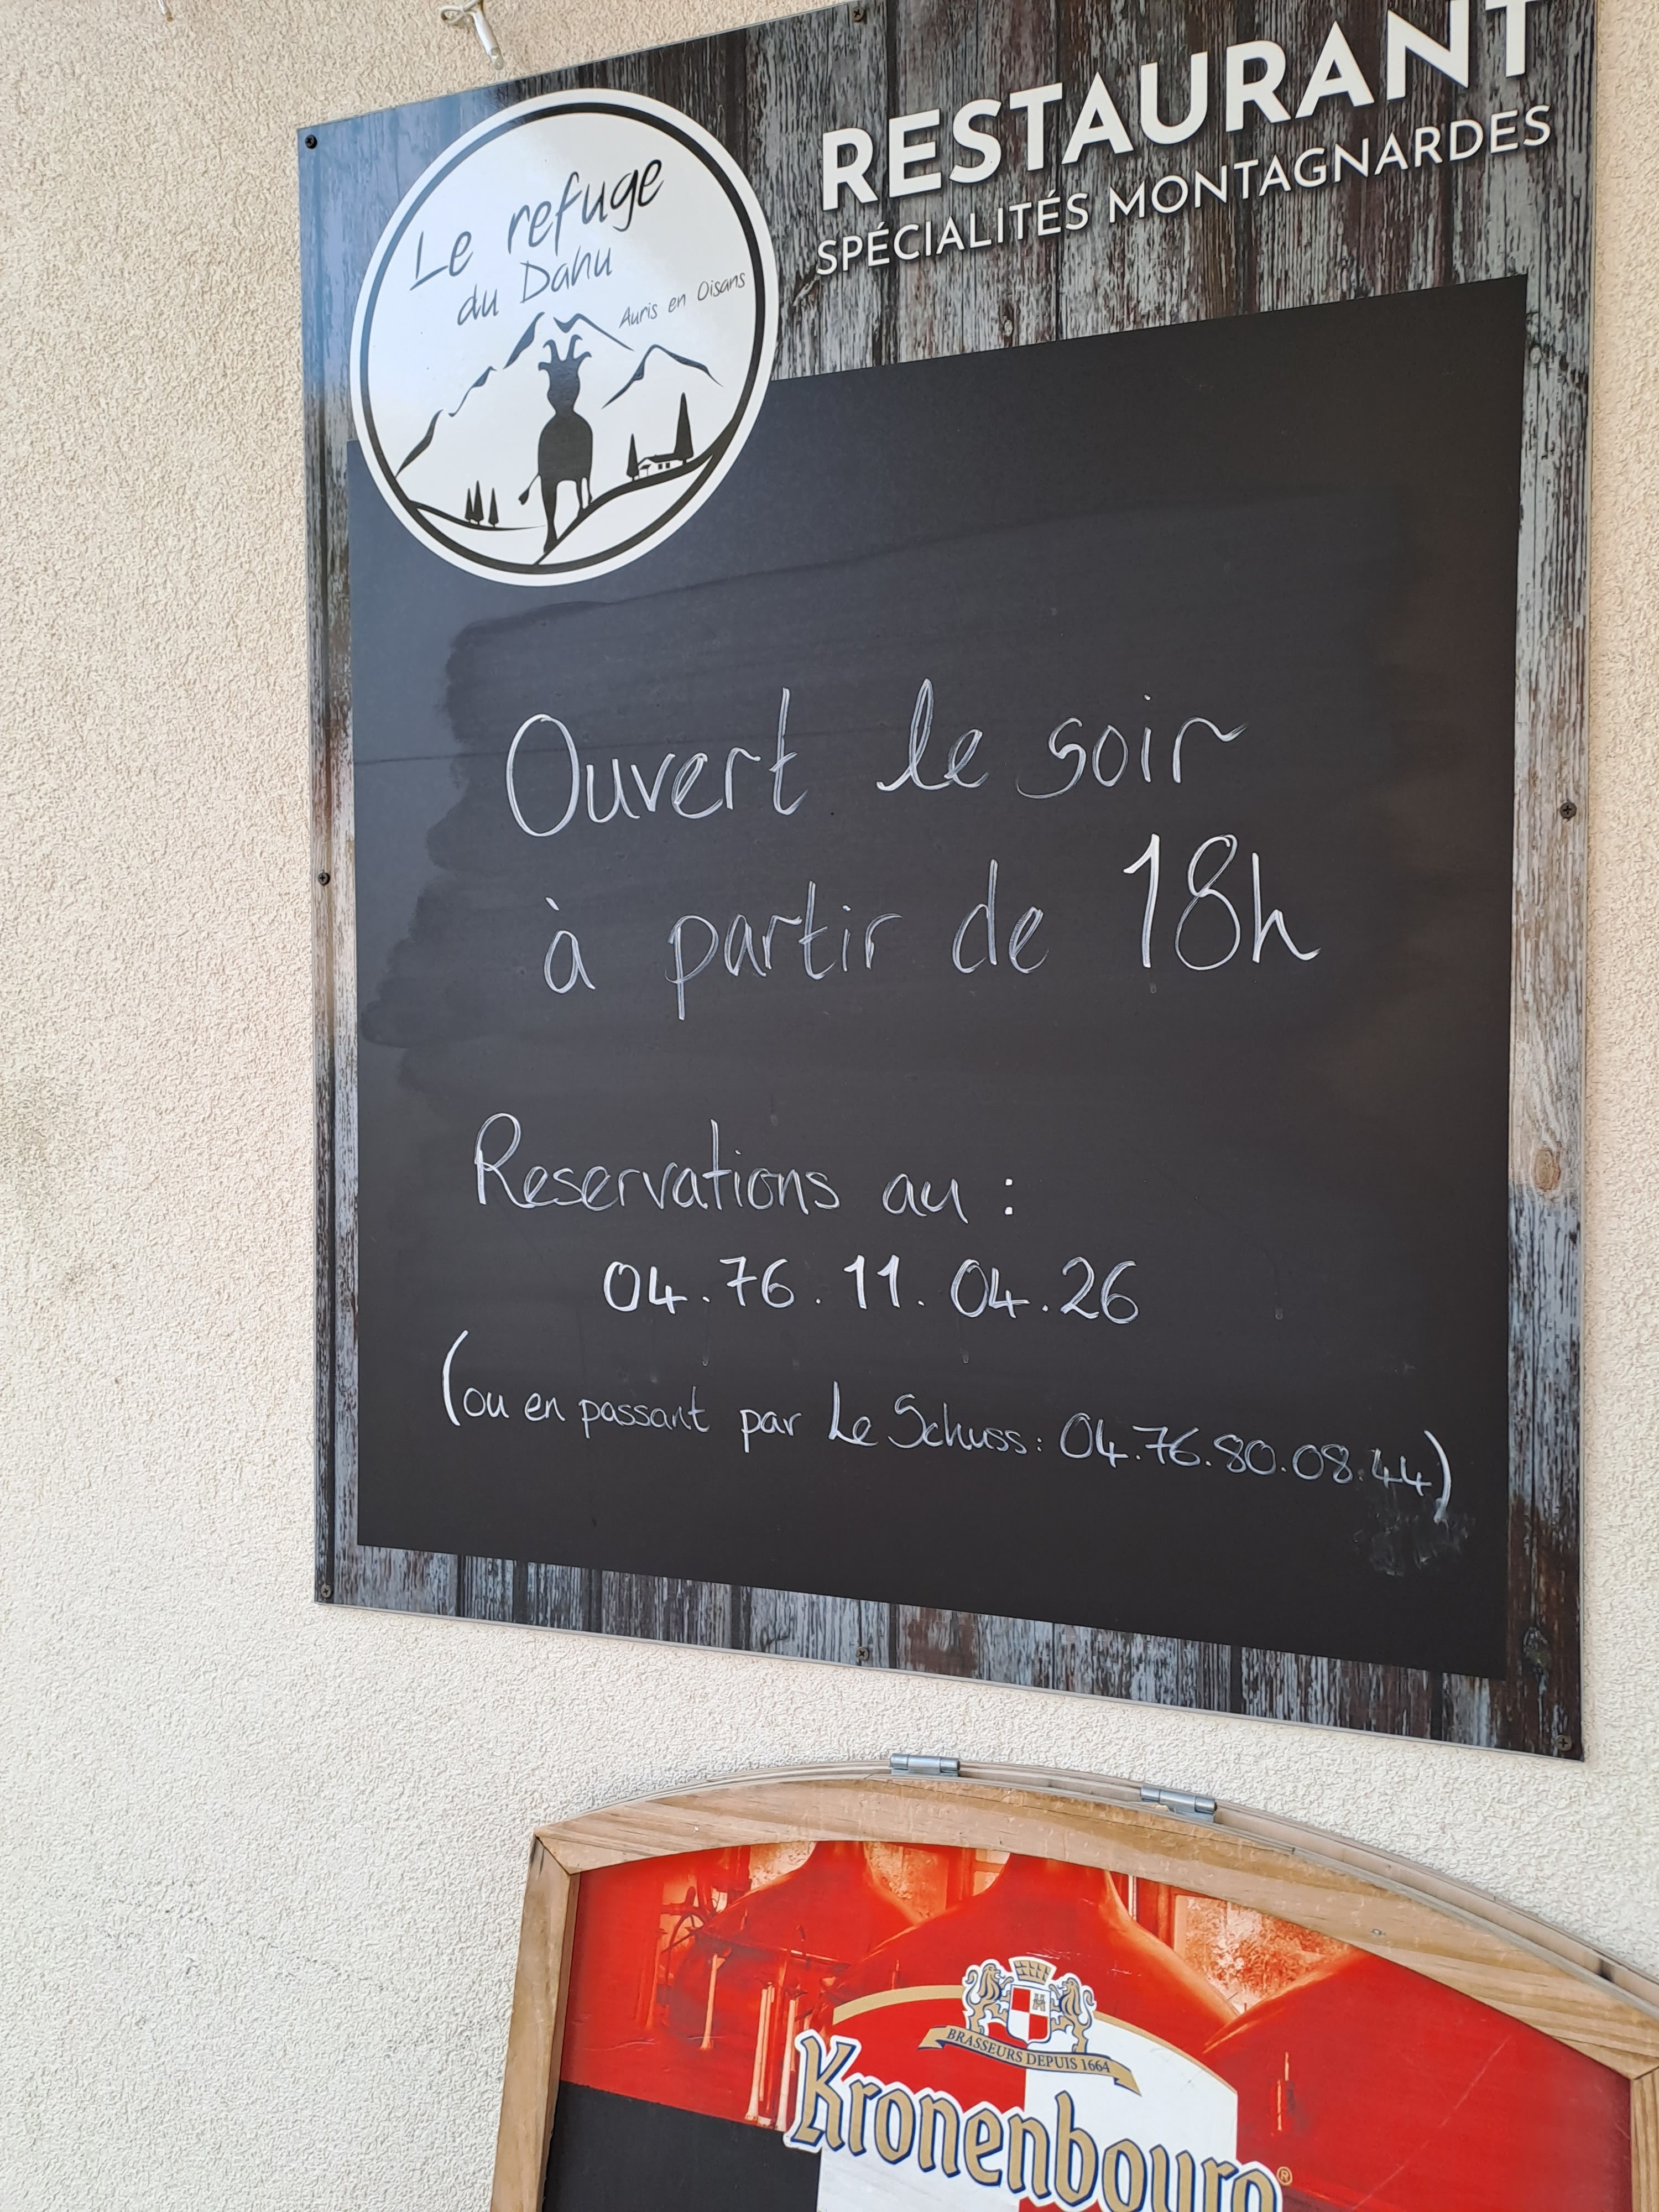 RESTAURANT
SPÉCIALITÉS MONTAGNARDES
Le refuge
du Dahu
Auris en Oisans
Ouvert le soir
à partir de 18h
Reservations au :
04.76.11.04.26
(ou en passant par Le Schuss: 04.76.80.08.44)
BRASSEURS DEPUIS 1664
Kronenbourg®